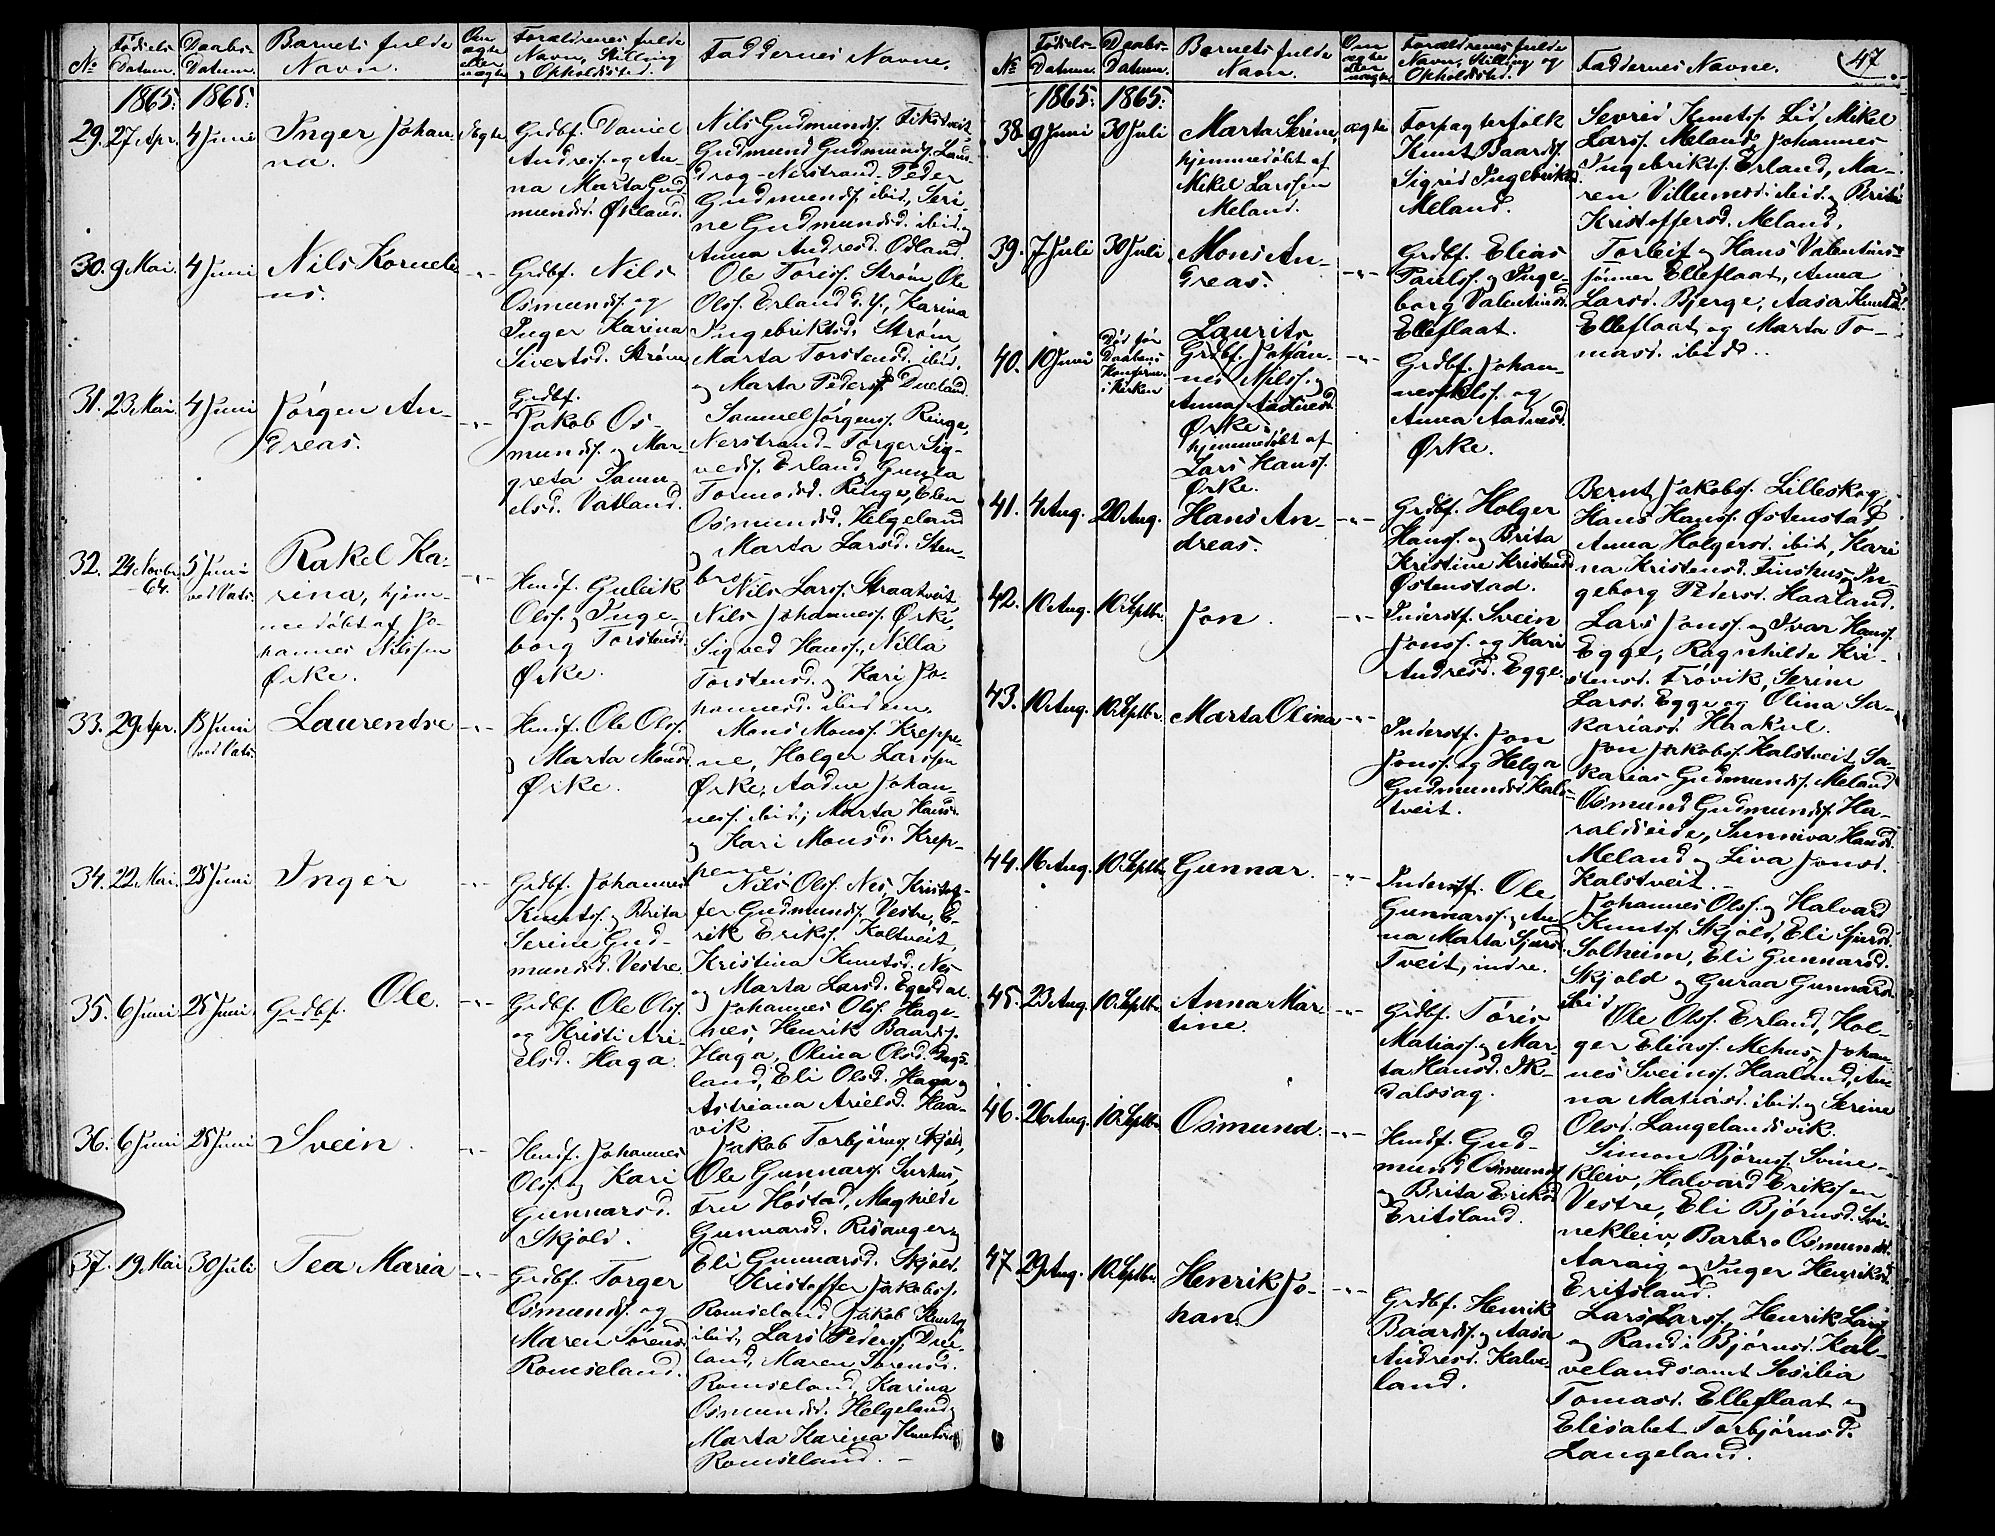 No
Fødsels Datum.
Daabs- Datum.
Barnets fulde Navn.
Om ægte eller uægte
Forældrenes fulde Navn, Stilling og Opholdssted.
Faddernes Navne.
1865. 1865.
29. 27 Apr. 4 Juni
Inger Johan-
na.
Ægte
Grdbf. Daniel
Andreass. og An-
na Marta Gud-
mundsd. Økland.
Nils Gudmunds.
Gudmund Gudmunds.
Nerstrand. Peder
Gudmunds. ibid, Seri-
ne Gudmundsd. ibid og
Anna Andresd. Ødland.
30. 9 Mai. 4 Juni
Nils Korneli-
us.
-"-
Grdbf. Nils
Osmunds. og
Inger Karina
Sivertsd. Strøm
Ole Tøriss. Strøm, Ole
Ols. Erland d. y., Karina
Ingebriktsd. Strøm,
Marta Torstensd. ibid.
og Marta Pedersd. Dueland.
31. 23 Mai. 4 Juni
Jørgen An-
dreas.
-"-
Grdbf.
Jakob Os-
munds. og Mar-
greta Samu-
elsd. Vatland.
Samuel Jørgens. Ringe,
Nerstrand - Torger Sig-
veds. Erland, Gunla
Tormodsd. Ringe, Elen
Osmundsd. Helgeland
og Marta Larsd. Sten-
bro
32. 24 Novbr. 64. 5 Juni ved Vats.
Rakel Ka-
rina, hjem-
medøbt af Jo-
hannes Nilssen
Ørke.
-"-
Husf. Guleik
Ols. og Inge-
borg Torstensd.
Ørke.
Nils Larss. Straatveit,
Nils Johanness. Ørke,
Sigved Hanss., Nilla
Torstensd. og Kari Jo-
hannesd. ibidem.
33. 29 Apr. 18 Juni ved Vats.
Laurentse
-"-
Husf. Ole Ols.
og Marta Monsd.
Ørke.
Mons Monss. Kreppe-
ne, Holger Larssen
Ørke, Aadne Johan-
ness. ibid, Marta Hansd.
og Kari Monsd. Krep-
pene.
34. 22 Mai. 25 Juni
Inger
-"-
Grdbf. Johannes
Knuts. og Brita
Serine Gud-
mundsd. Vestre.
Nils Ols. Nes, Kristof-
fer Gudmunds. Vestre, E-
rik Eriks. Koltveit,
Kristina Knutsd. Nes
og Marta Larsd. Egesdal.
35. 6 Juni 25 Juni
Grdbf. Ole.
-"-
Grdbf. Ole Ols.
og Kristi Ari-
elsd. Haga.
Johannes Ols. Hage-
nes, Henrik Baards.
Haga, Olina Olsd. Dags-
land, Eli Olsd. Haga og
Astriana Arielsd. Haa-
vik
36. 6 Juni 25 Juni
Svein.
-"-
Husf. Johannes
Ols. og Kari
Gunnarsd.
Skjold.
Jakob Torbjørns. Skjold,
Ole Gunnars.
Fru Høstad, Maghilde
Gunnarsd. Risanger og
Eli Gunnarsd. Skjold.
37. 19 Mai 30 Juli
Tea Maria
-"-
Grdbf. Torger
Osmunds. og
Maren Sørensd.
Romseland.
Kristoffer Jakobs.
Romseland, Jakob Knuts.
ibid, Lars Peders. Due-
land, Maren Sørensd.
Romseland, Karina
Osmundsd. Helgeland og
Marta Karina Knutsd.
Romseland.
No
Fødsels- Datum.
Daabs- Datum.
Barnets fulde Navn.
Om ægte eller uægte
Forældrenes fulde Navn, Stilling og Opholdssted.
Faddernes Navne.
47
1865. 1865.
38. 9 Juni 30 Juli
Marta Serine,
hjemmedøbt af
Mikel Larssen
Meland.
ægte
Forpagterfolk
Knut Baards.
Sigrid Ingebriktsd.
Meland.
Sevrid Knuts. Lid, Mikel
Larss. Meland, Johannes
Ingebrikts. Erland, Ma-
ren Villumsd. ibid og Brita
Kristoffersd. Meland.
39. 7 Juli 30 Juli
Mons An-
dreas.
-"-
Grdbf. Elias
Pauls. og Inge-
borg Valentinsd.
Elleflaat.
Torleif og Hans Valentins-
sønner Elleflaat, Anna
Larsd. Bjerge, Aasa Knutsd.
Elleflaat og Marta To-
masd. ibid.
40. 10 Juni
Død før Daabens Konfirm. i Kirken
Laurits
Grdbf. Johan-
nes Nilss. og
Anna Aadnesd.
Ørke.
hjemmedøbt af
Lars Hanss.
Ørke.
-"-
Grdbf. Johan-
nes Nilss. og
Anna Aadnesd.
Ørke.
41. 4 Aug. 20 Aug.
Hans An-
dreas.
-"-
Grdbf. Holger
Hanss. og Brita
Kristine Kristensd.
Østenstad.
Bernt Jakobs. Lilleskog
Hans Hanss. Østenstad
Anna Holgersd. ibid, Kari-
na Kristensd. Finshus, In-
geborg Pedersd. Haaland.
42. 10 Aug. 10 Septbr.
Jon.
-"-
Inderstf. Svein
Jonss. og Kari
Andresd. Egge.
Lars Jonss. og Ivar Hanss.
Egge, Ragnhilde Kri-
stensd. Frøvik, Serine
Larsd. Egge og Olina Sa-
kariasd. Haakul.
43. 10 Aug. 10 Septbr.
Marta Olina
-"-
Inderstf. Jon
Jonss. og Helga
Gudmundsd. Kals-
tveit.
Jon Jakobs. Kalstveit, Sa-
karias Gudmunds. Meland
Osmund Gudmunds. Ha-
raldseide, Sunniva Hansd.
Meland og Siva Jonsd.
Kalstveit.
44. 16 Aug. 10 Septbr.
Gunnar.
-"-
Inderstf. Ole
Gunnars. og An-
na Marta Sjursd.
Tveit, indre.
Johannes Ols. og Halvard
Knuts. Skjold, Eli Sjursd.
Solheim, Eli Gunnarsd.
Skjold og Guraa Gunnarsd.
ibid
45. 23 Aug. 10 Septbr.
Anna Mar-
tine.
-"-
Grdbf. Tøris
Matiass. og Mar-
ta Hansd. Ik-
dalssag.
Ole Ols. Erland, Hol-
ger Eliass. Mehus, Johan-
nes Sveins. Haaland, An-
na Matiasd. ibid og Serine
Olsd. Langelandsvik.
46. 26 Aug. 10 Septbr.
Osmund
-"-
Husf. Gud-
mund Osmunds.
og Brita Eriksd.
Eritsland.
Simon Bjørns. Svine-
kleiv, Halvard Erikssen
Vestre, Eli Bjørnsd. Svi-
nekleiv, Barbro Osmundsd.
Aaraig og Inger Henriksd.
Eritsland.
47 29 Aug. 10 Septbr.
Henrik Jo-
han.
-"-
Grdbf. Henrik
Baards. og Aasa
Andresd. Kalve-
land.
Lars Larss., Henrik Larss.
og Randi Bjørnsd. Kal-
veland samt Sesilia
Tomasd. Elleflaat og
Elisabet Torbjørnsd.
Langeland.